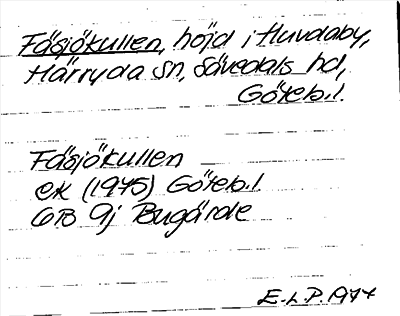 Fäsjökullen, höjd i Huvdaby,
Härryda sn, Sävedals hd,
Göteb.l.
Fäsjökullen
ek (1975) Göteb.l
6B 9j Bugärde
E.L.P. 1977